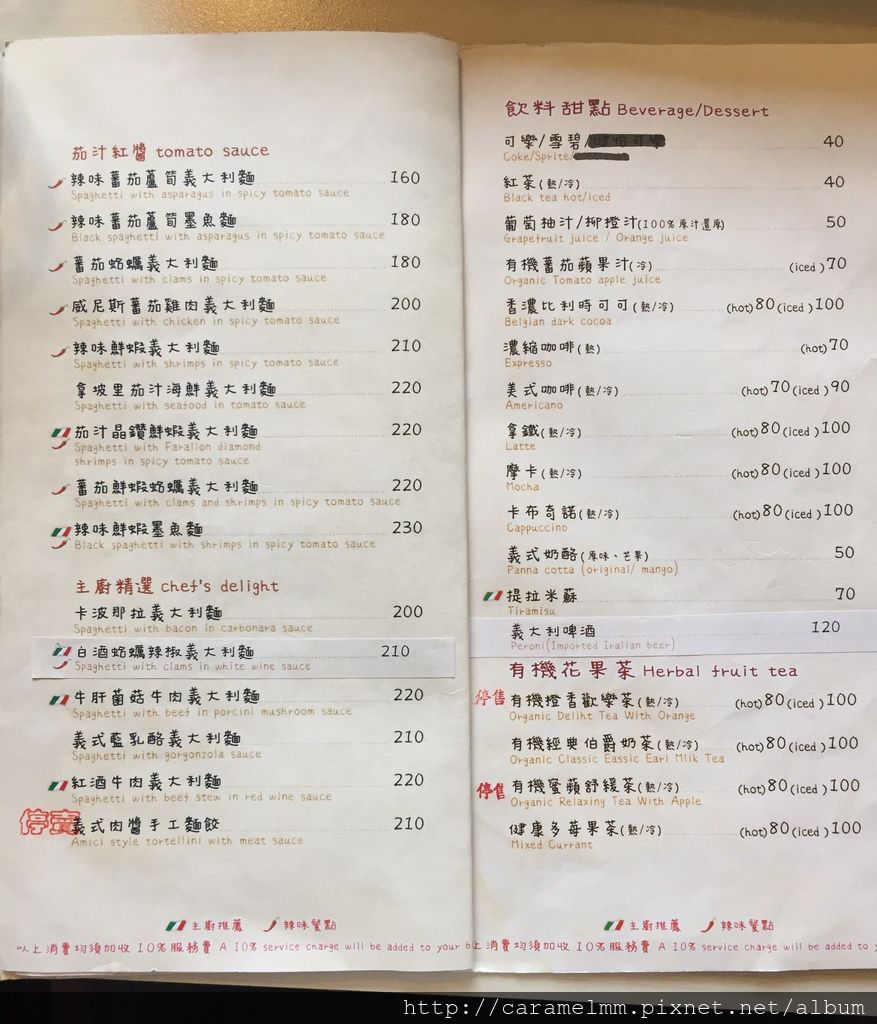 茄汁紅醬 tomato sauce
辣味蕃茄蘆筍義大利麵 160
Spaghetti with asparagus in spicy tomato sauce
辣味蕃茄蘆筍墨魚麵 180
Black spaghetti with asparagus in spicy tomato sauce
蕃茄蛤蠣義大利麵 180
Spaghetti with clams in spicy tomato sauce
威尼斯蕃茄雞肉義大利麵 200
Spaghetti with chicken in spicy tomato sauce
辣味鮮蝦義大利麵 210
Spaghetti with shrimps in spicy tomato sauce
拿坡里茄汁海鮮義大利麵 220
Spaghetti with seafood in tomato sauce
茄汁晶鑽鮮蝦義大利麵 220
Spaghetti with Farallon diamond
shrimps in spicy tomato sauce
蕃茄鮮蝦蛤蠣義大利麵 220
Spaghetti with clams and shrimps in spicy tomato sauce
辣味鮮蝦墨魚麵 230
Black spaghetti with shrimps in spicy tomato sauce
主廚精選 chef's delight
卡波那拉義大利麵 200
Spaghetti with bacon in carbonara sauce
白酒蛤蠣辣椒義大利麵 210
Spaghetti with clams in white wine sauce
牛肝菌菇牛肉義大利麵 220
Spaghetti with beef in porcini mushroom sauce
義式藍乳酪義大利麵 210
Spaghetti with gorgonzola sauce
紅酒牛肉義大利麵 220
Spaghetti with beef stew in red wine sauce
停賣 義式肉醬手工麵餃 210
Amici style tortellini with meat sauce
主廚推薦 辣味餐點
以上消費均須加收 10%服務費 A 10% service charge will be added to your b
飲料甜點 Beverage/Dessert
可樂/雪碧/ 40
Coke/Sprite/
紅茶(熱/冷) 40
Black tea hot/iced
葡萄柚汁/柳橙汁(100%原汁還原) 50
Grapefruit juice / Orange juice
有機蕃茄蘋果汁(冷) (iced)70
Organic Tomato apple juice
香濃比利時可可(熱/冷) (hot)80(iced)100
Belgian dark cocoa
濃縮咖啡(熱) (hot)70
Expresso
美式咖啡(熱/冷) (hot)70(iced)90
Americano
拿鐵(熱/冷) (hot)80(iced)100
Latte
摩卡(熱/冷) (hot)80(iced)100
Mocha
卡布奇諾(熱/冷) (hot)80(iced)100
Cappuccino
義式奶酪(原味、芒果) 50
Panna cotta (original/ mango)
提拉米蘇 70
Tiramisu
義大利啤酒 120
Peroni(Imported Iralian beer)
有機花果茶 Herbal fruit tea
停售 有機橙香歡樂茶(熱/冷) (hot)80(iced)100
Organic Deliht Tea With Orange
有機經典伯爵奶茶(熱/冷) (hot)80(iced)100
Organic Classic Eassic Earl Milk Tea
停售 有機蜜蘋舒緩茶(熱/冷) (hot)80(iced)100
Organic Relaxing Tea With Apple
健康多莓果茶(熱/冷) (hot)80(iced)100
Mixed Currant
主廚推薦 辣味餐點
上消費均須加收 10%服務費 A 10% service charge will be added to
http://caramelmm.pixnet.net/album